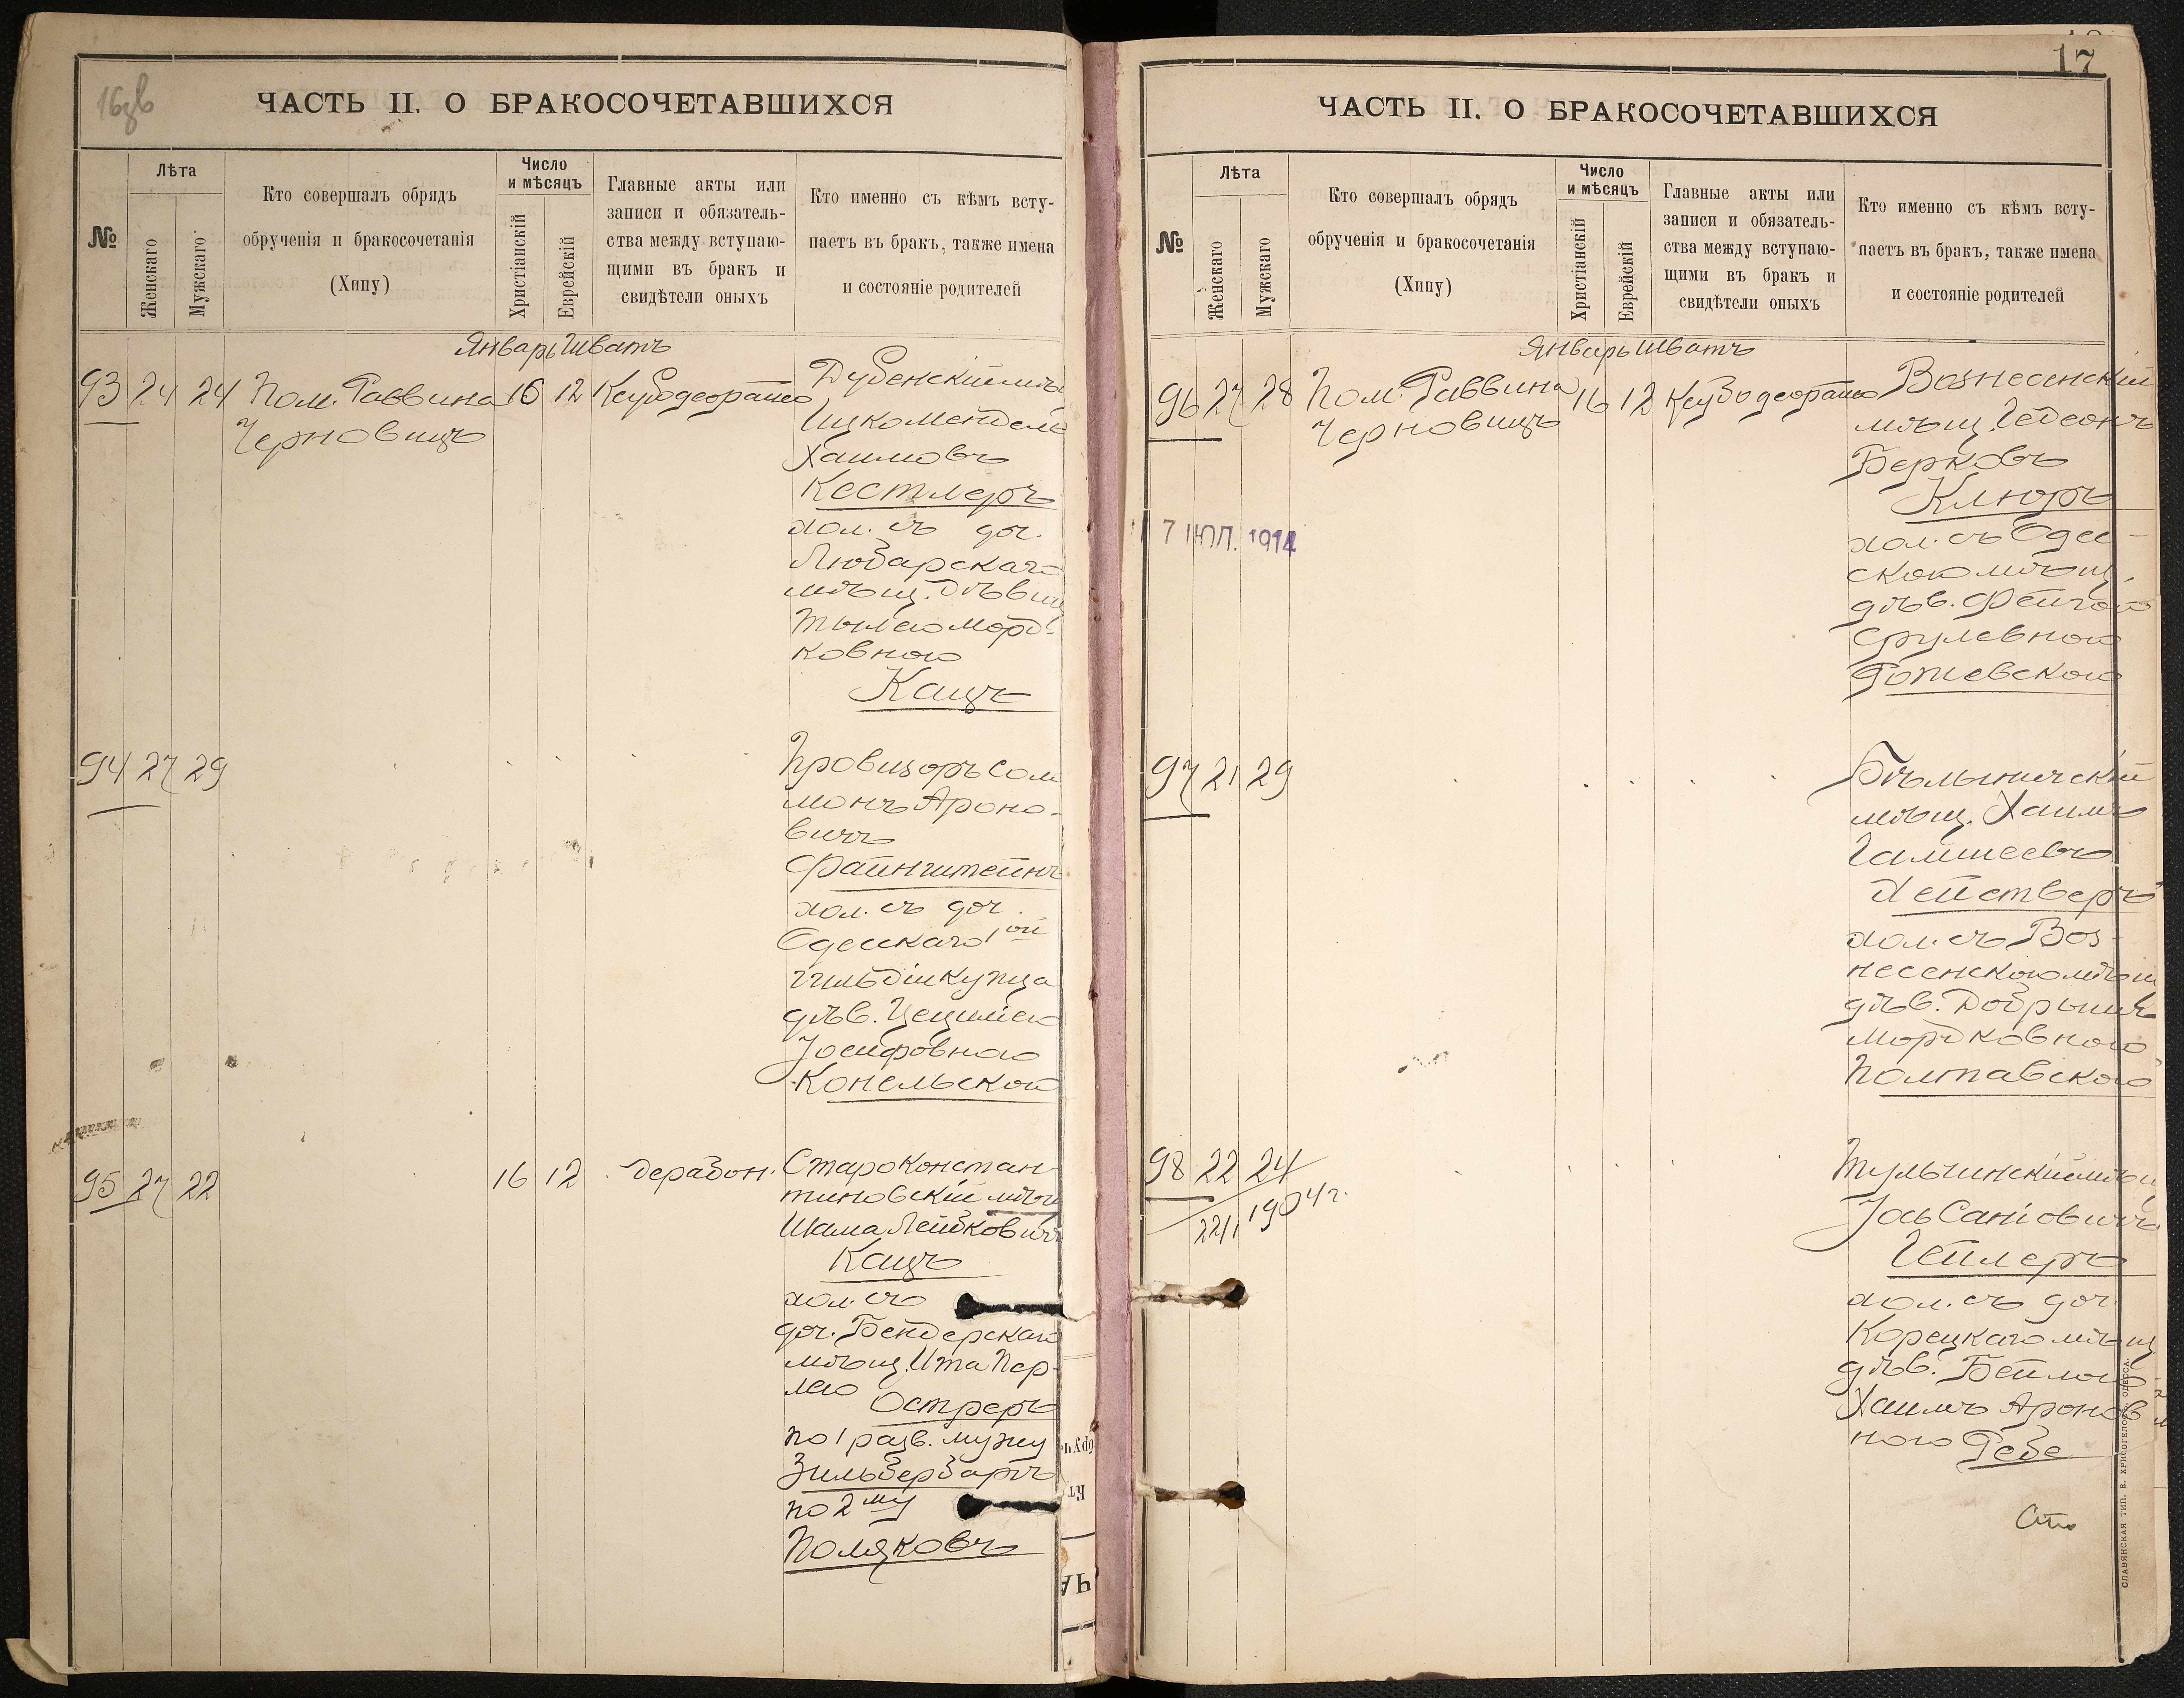 16об
ЧАСТЬ II. О БРАКОСОЧЕТАВШИХСЯ
№
Лѣта
Женскаго
Мужскаго
Кто совершалъ обрядъ
обрученія и бракосочетанія
(Хипу)
Число
и мѣсяцъ
Христіанскій
Еврейскій
Главные акты или
записи и обязатель-
ства между вступаю-
щими въ бракъ и
свидѣтели оныхъ
Кто именно съ кѣмъ всту-
паетъ въ бракъ, также имена
и состояніе родителей
Январь Шватъ
93 24 24 Пом. Раввина 16 12
Черновицъ
Дубенскій мѣщ
Ицко Мендель
Хаимовъ
Кестлеръ
хол. съ доч.
Любарскаго
мѣщ. дѣвиц
Тылею Морд-
ковною
Кацъ
94 27 29
Провизоръ Соло
монъ Ароно-
вичъ
Файнштейнъ
хол. съ доч.
Одесскаго 1ой
гильдіи купца
дѣв. Цециліею
Іосифовною
Конельскою
95 27 22 16 12 дерабон.
Староконстан
тиновскій мѣщ
Шама Лейбковичъ
Кацъ
хол. съ
доч. Бендерскаго
мѣщ. Ита Пер-
лею
Остреръ
по 1 разв. мужу
Зильбербартъ
по 2му
Поляковъ
17
ЧАСТЬ II. О БРАКОСОЧЕТАВШИХСЯ
№
Лѣта
Женскаго
Мужскаго
Кто совершалъ обрядъ
обрученія и бракосочетанія
(Хипу)
Число
и мѣсяцъ
Христіанскій
Еврейскій
Главные акты или
записи и обязатель-
ства между вступаю-
щими въ бракъ и
свидѣтели оныхъ
Кто именно съ кѣмъ всту-
паетъ въ бракъ, также имена
и состояніе родителей
Январь Шватъ
96 27 28 Пом. Раввина 16 12
Черновицъ
7 ІЮЛ. 1914
Вознесенскій
мѣщ. Гедеонъ
Берковъ
Клюръ
хол. съ Одес-
скою мѣщ.
дѣв. Фейгою
Срулевною
Ротевскою
97 21 29
Бѣлыничскій
мѣщ. Хаимъ
Гамшеевъ
Хействеръ
хол. съ Воз-
несенскою мѣщ
дѣв. Добрыш
Мордковною
Полтавскою
98 22 24
22/I 1904 г.
Тульчинскій мѣщ
Іось Саніовичъ
Гейлеръ
хол. съ доч.
Корецкаго мѣщ
дѣв. Бейлою-
Хаимъ Аронов
ною Ребе
СЛАВЯНСКАЯ ТИП. Е. ХРИСОГЕЛОСЪ ОДЕССА.